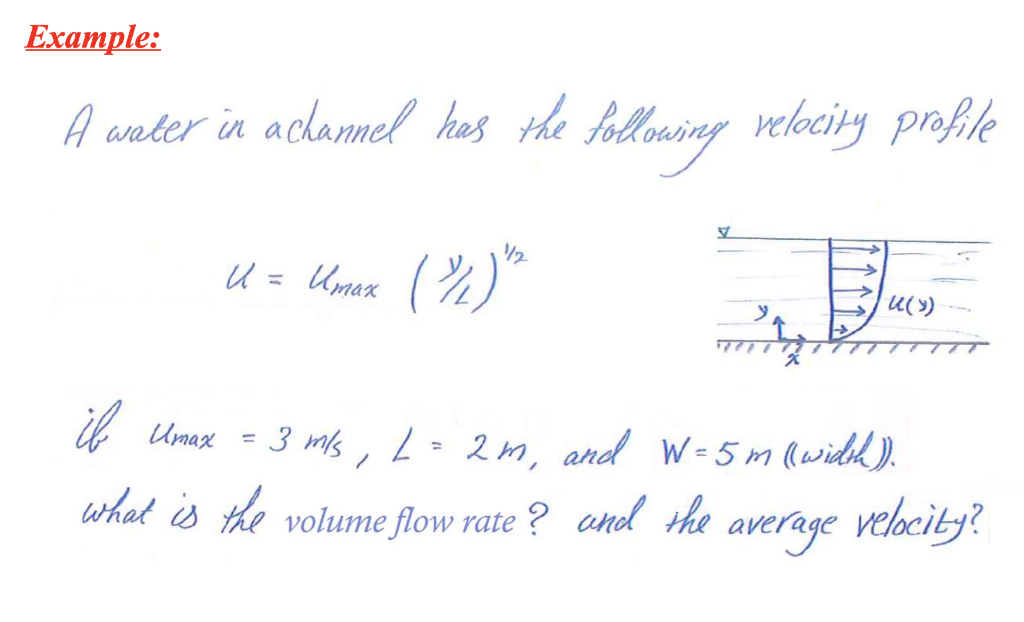 Example:
A water in a channel has the following velocity profile
u = umax (y/L)^1/2
u(y)
y
x
if umax = 3 m/s, L = 2 m, and W = 5 m ((width)).
what is the volume flow rate ? and the average velocity?